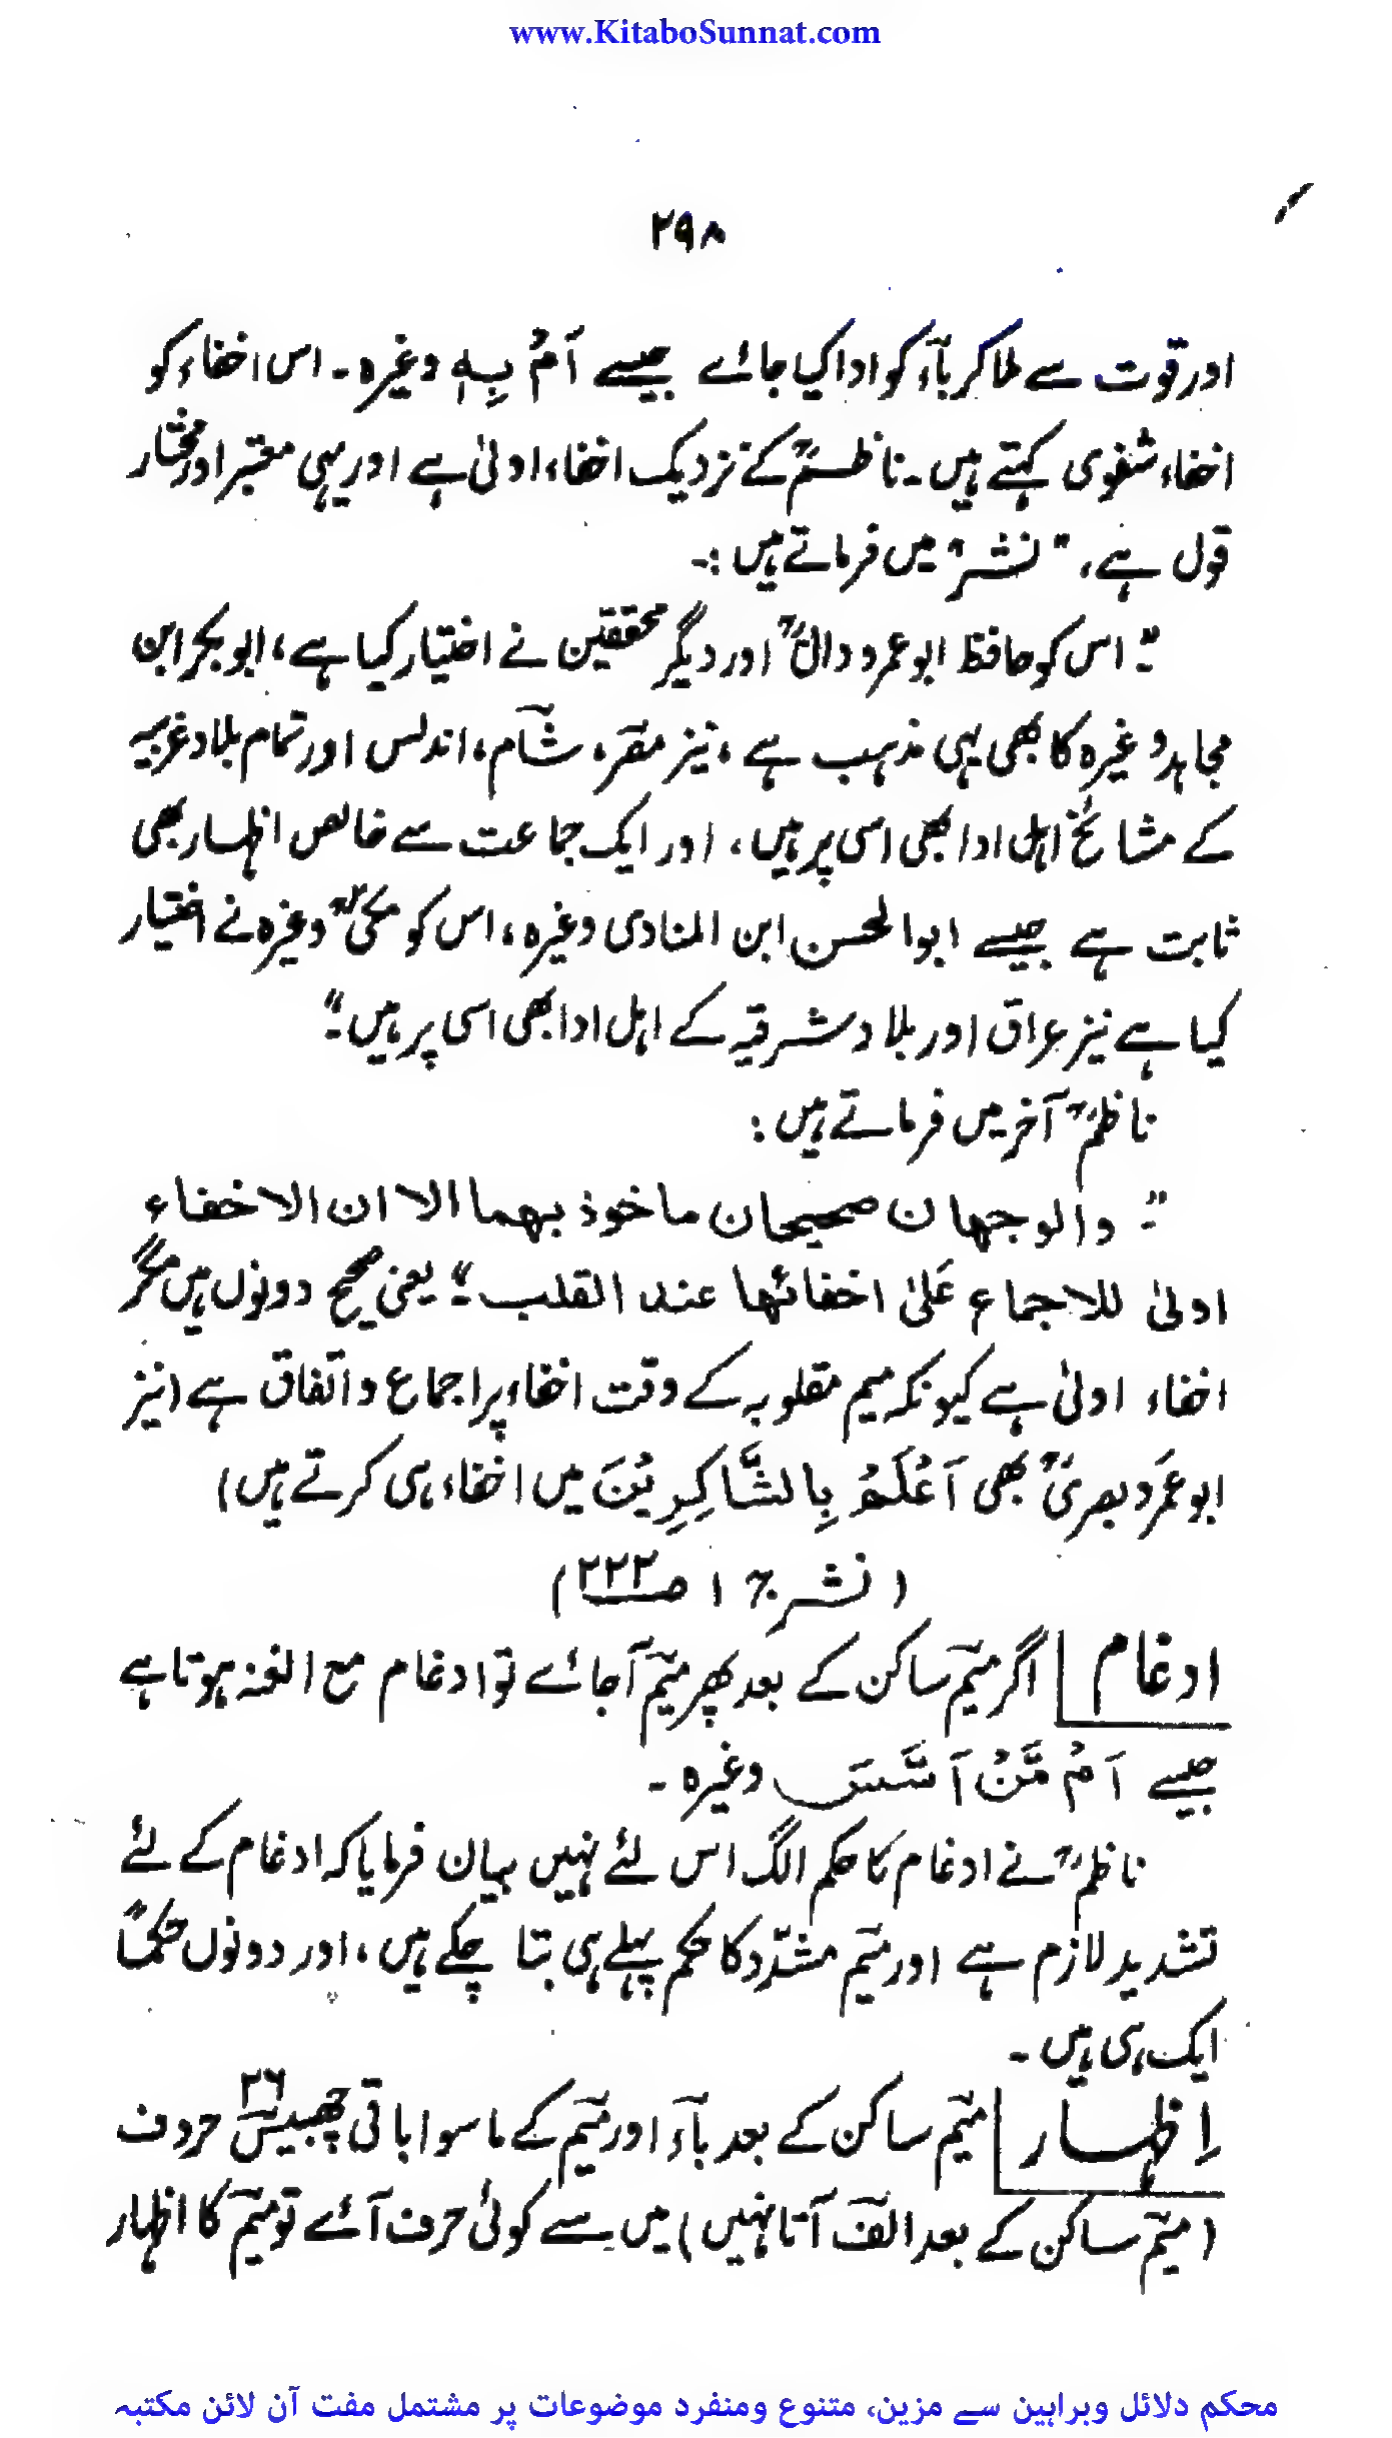 www.KitaboSunnat.com
۲۹۸
اور قوت سے ملا کر بآء کو ادا کیا جائے جیسے اَمْ بِہٖ وغیرہ۔ اس اخفاء کو
اخفاء شفوی کہتے ہیں۔ ناظمؒ کے نزدیک اخفاء اولیٰ ہے اور یہی معتبر اور مختار
قول ہے، "نشر" میں فرماتے ہیں :۔
"۔ اس کو حافظ ابو عمرو دانیؒ اور دیگر محققین نے اختیار کیا ہے، ابو بکر ابن
مجاہد وغیرہ کا بھی یہی مذہب ہے، نیز مصر، شآم، اندلس اور تمام بلاد عربیہ
کے مشائخ اہل ادا بھی اسی پر ہیں، اور ایک جماعت سے خالص اظہار بھی
ثابت ہے جیسے ابوالحسن ابن المنادی وغیرہ، اس کو مکیؒ وغیرہ نے اختیار
کیا ہے نیز عراق اور بلاد شرقیہ کے اہل ادا بھی اسی پر ہیں۔"
ناظمؒ آخر میں فرماتے ہیں :
"۔ والوجهان صحیحان ماخوذ بهما الا ان الاخفاء
اولیٰ للاجماع عَلیٰ اخفائها عند القلب۔" یعنی صحیح دونوں ہیں مگر
اخفاء اولیٰ ہے کیونکہ میم مقلوبہ کے وقت اخفاء پر اجماع و اتفاق ہے (نیز
ابو عمرو بصریؒ بھی اَعْلَمْ بِالشَّاکِرِیْنَ میں اخفاء ہی کرتے ہیں)
(نشر ج ۱ صـ۲۲۲)
ادغام | اگر میٓم ساکن کے بعد پھر میٓم آجائے تو ادغام مع الغنہ ہوتا ہے
جیسے اَمْ مَّنْ اَسَّسَ وغیرہ ۔
ناظمؒ نے ادغام کا حکم الگ اس لئے نہیں بیان فرمایا کہ ادغام کے لئے
تشدید لازم ہے اور میٓم مشدّد کا حکم پہلے ہی بتا چکے ہیں، اور دونوں حکماً
ایک ہی ہیں ۔
اِظہار | میٓم ساکن کے بعد بآء اور میٓم کے ماسوا باقی چھبیس ۲۶ حروف
(میٓم ساکن کے بعد الفٓ آتا نہیں) میں سے کوئی حرف آئے تو میٓم کا اظہار
محکم دلائل وبراہین سے مزین، متنوع ومنفرد موضوعات پر مشتمل مفت آن لائن مکتبہ